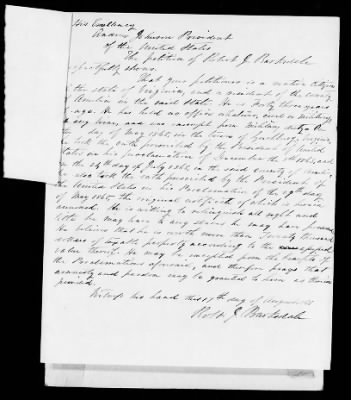 His Excellency
Andrew Johnson President
of the United States
The petition of Robert J. Barksdale
respectfully shows.
That your petitioner is a native citizen
of the state of Virginia, and a resident of the county
Amelia in the said State. He is forty three years
of age. He has held no office whatever, civil or military
any war, and was exempt from military duty. On
the day of May 1865, in the town of
he took the oath prescribed by the President of United
States in his proclamation of December the 8th 1863, and
on the 24th day of July 1865, in the said county of
he also took the oath prescribed by the President of
the United States in his Proclamation of the 29th day
of May 1865, the original certificate of which is herein
annexed. He is willing to relinquish all right and
title he may have to any slaves he may have
He believes that he is worth more than Twenty thousand
dollars of taxable property according to the
value thereof. He may be excepted from the benefits of
the Proclamations aforesaid, and therefore prays that
amnesty and pardon may be granted to him as therein
provided.
Witness his hand this day of August
Robt J. Barksdale